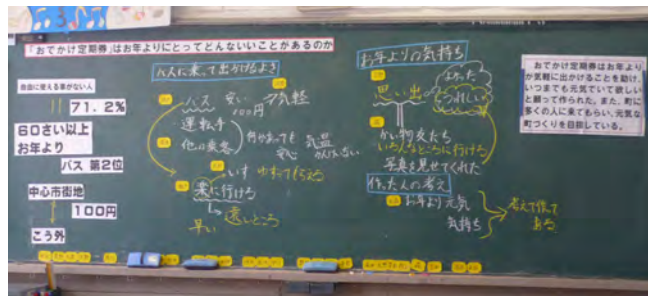 「おでかけ定期券」はお年よりにとってどんないいことがあるのか
自由に使える車がない人
71.2%
60さい以上
お年より
バス 第2位
中心市街地
100円
こう外
バスに乗って出かけるよさ
バス 安い 気軽
100円
運転手
他の乗客
何かあっても
安心
いす ゆずってもらえる
楽に行ける
早い 遠いところ
お年よりの気持ち
思い出
よかった
うれしい
かい物 友だち
いろんなところに行ける
写真を見せてくれた
作った人の考え
お年より元気
気持ち
考えて作って
ある
おでかけ定期券はお年より
が気軽に出かけることを助け、
いつまでも元気でいて欲しい
と願って作られた。また、町に
多くの人に来てもらい、元気な
町づくりを目指している。